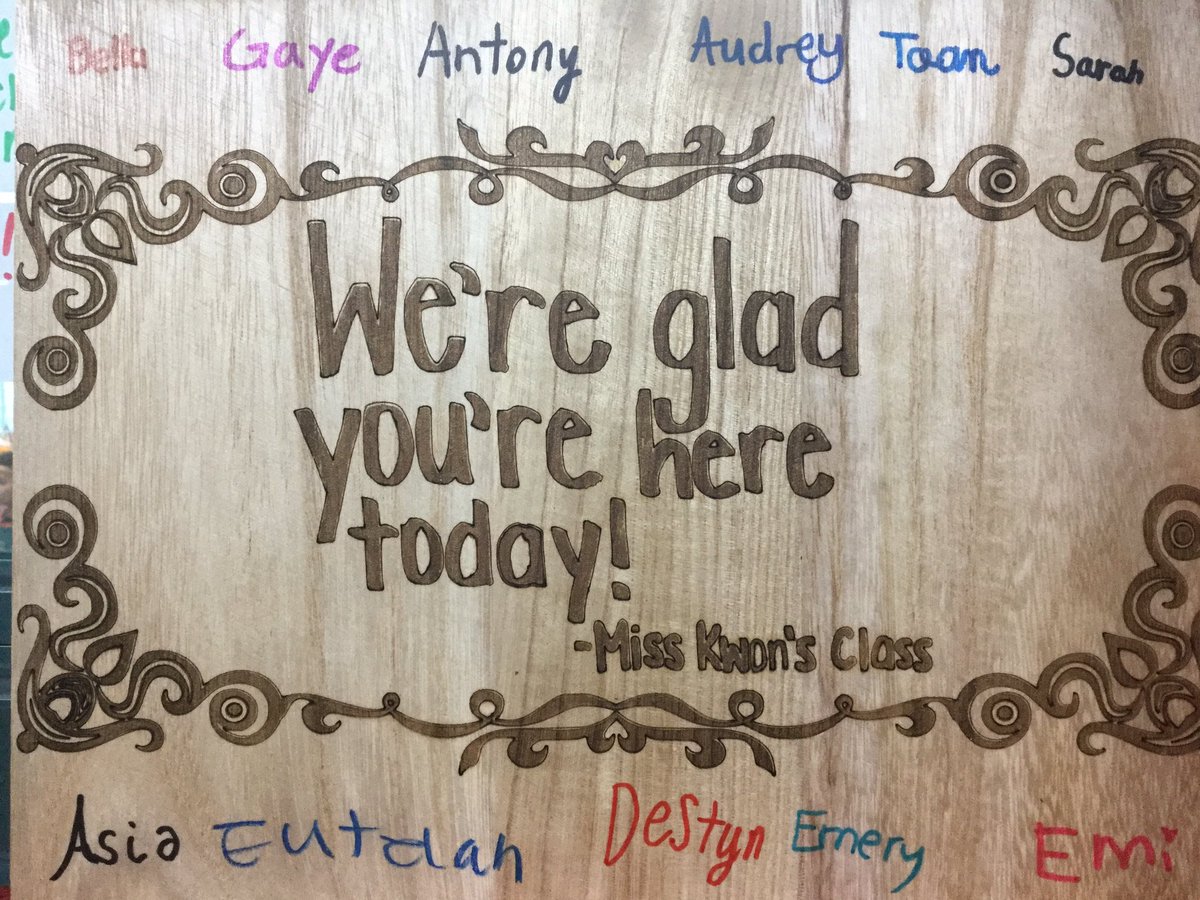 Bella Gaye Antony Audrey Toan Sarah
We're glad
you're here
today!
-Miss Kwon's Class
Asia Eutdah Destyn Emery Emi